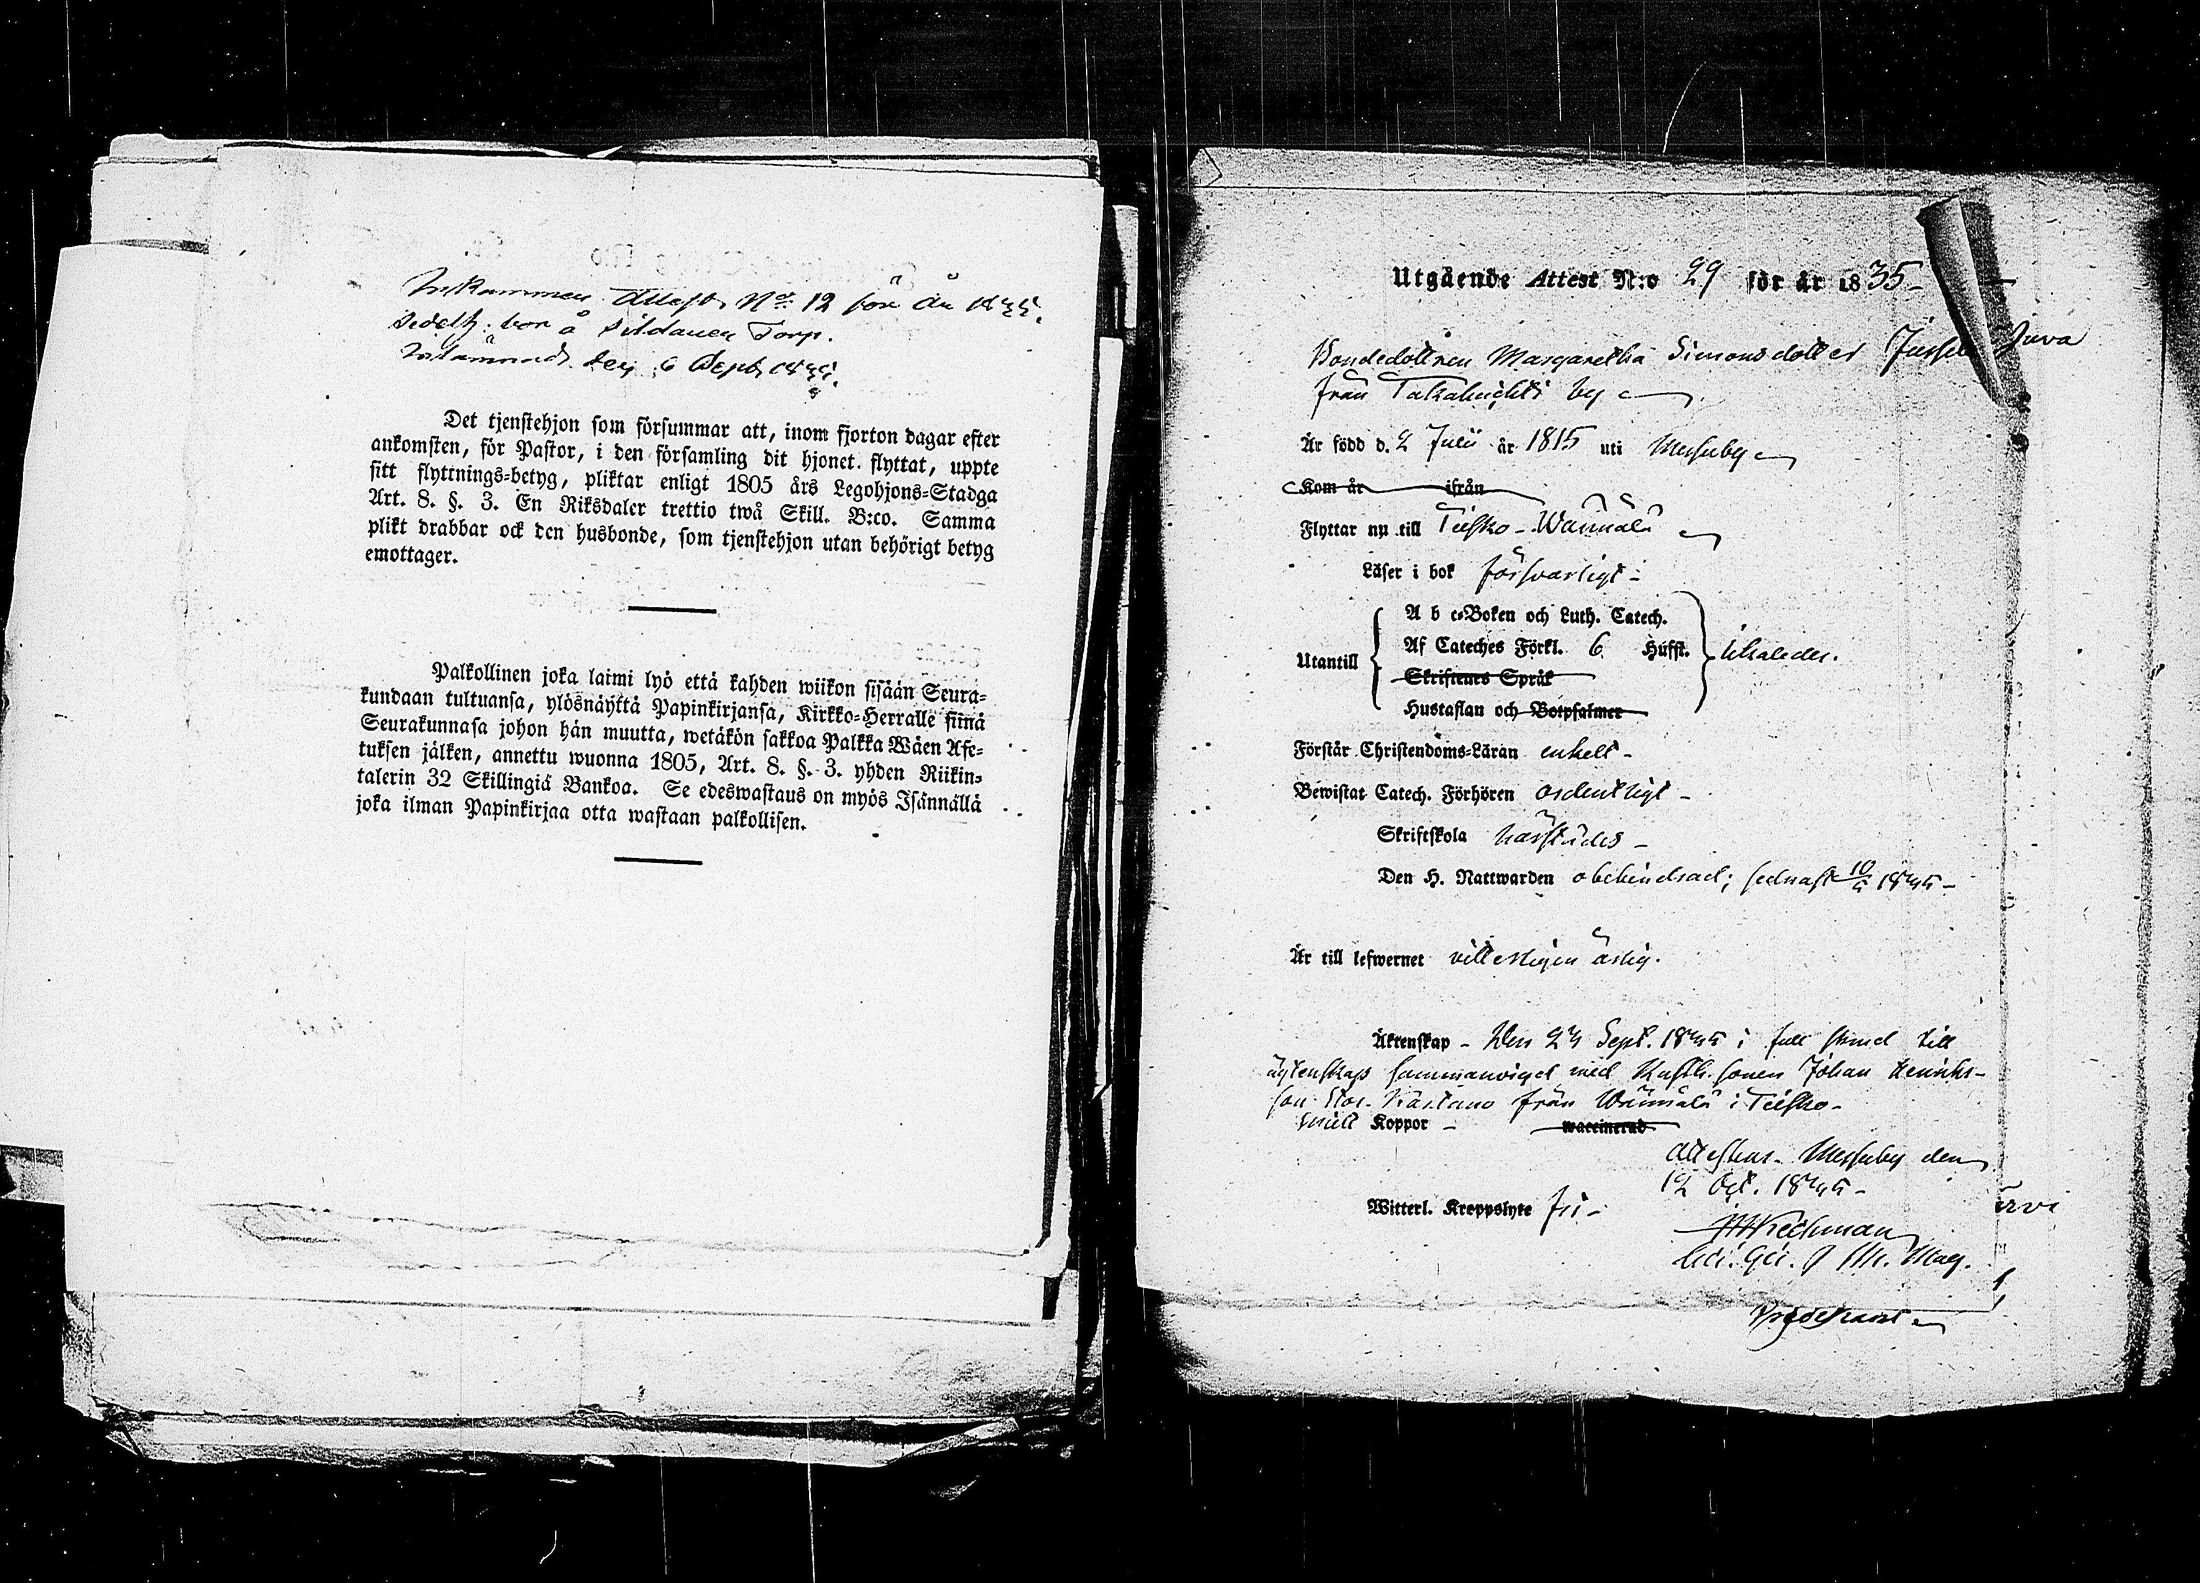 Inkommen Attest No 12 för år 1835.
bor å Sildanen Torp.
Inlämnad den 6 Sept. 1835.
Det tjenstehjon som försummar att, inom fjorton dagar efter
ankomsten, för Pastor, i den församling dit hjonet flyttat, uppte
sitt flyttnings-betyg, pliktar enligt 1805 års Legohjons-Stadga
Art. 8. §. 3. En Riksdaler trettio twå Skill. B:co. Samma
plikt drabbar ock den husbonde, som tjenstehjon utan behörigt betyg
emottager.
Palkollinen joka laimi lyö että kahden wiikon sisään Seura-
kundaan tultuansa, ylösnäyttä Papinkirjansa, Kirkko-Herralle siinä
Seurakunnasa johon hän muutta, wetäkön sakkoa Palkka Wäen Ase-
tuksen jälken, annettu wuonna 1805, Art. 8. §. 3. yhden Riikin-
talerin 32 Skillingiä Bankoa. Se edeswastaus on myös Isännällä
joka ilman Papinkirjaa otta wastaan palkollisen.
Utgående Attest N:o 29 för år 1835
Bondedottren Margaretha Simonsdotter Jussila
från Takahuchti by
Är född d. 2 Julii år 1815 uti Messuby
Kom år ifrån
Flyttar nu till Teisko-Wännälä
Läser i bok försvarligt
A b c-Boken och Luth. Catech.
Af Cateches Förkl. 6 Hufst.
Utantill
Skriftenes Språk
Hustaflan och Botpsalmer
Förstår Christendoms-Läran enkelt
Bewistat Catech. Förhören ordentligt
Skriftskola härstädes
Den H. Nattwarden obehindrad; sednast 10/5 1835
Är till lefwernet vitterligen ärlig.
Äktenskap - Den 27 Sept. 1835 i till
ägtenskap sammanvigd med sonen Johan Henriks-
son från Wännälä i Teisko
Koppor waccinerad
Attesteras Messuby den
12 Oct. 1835
Witterl. Kroppslyte fri
ärvi